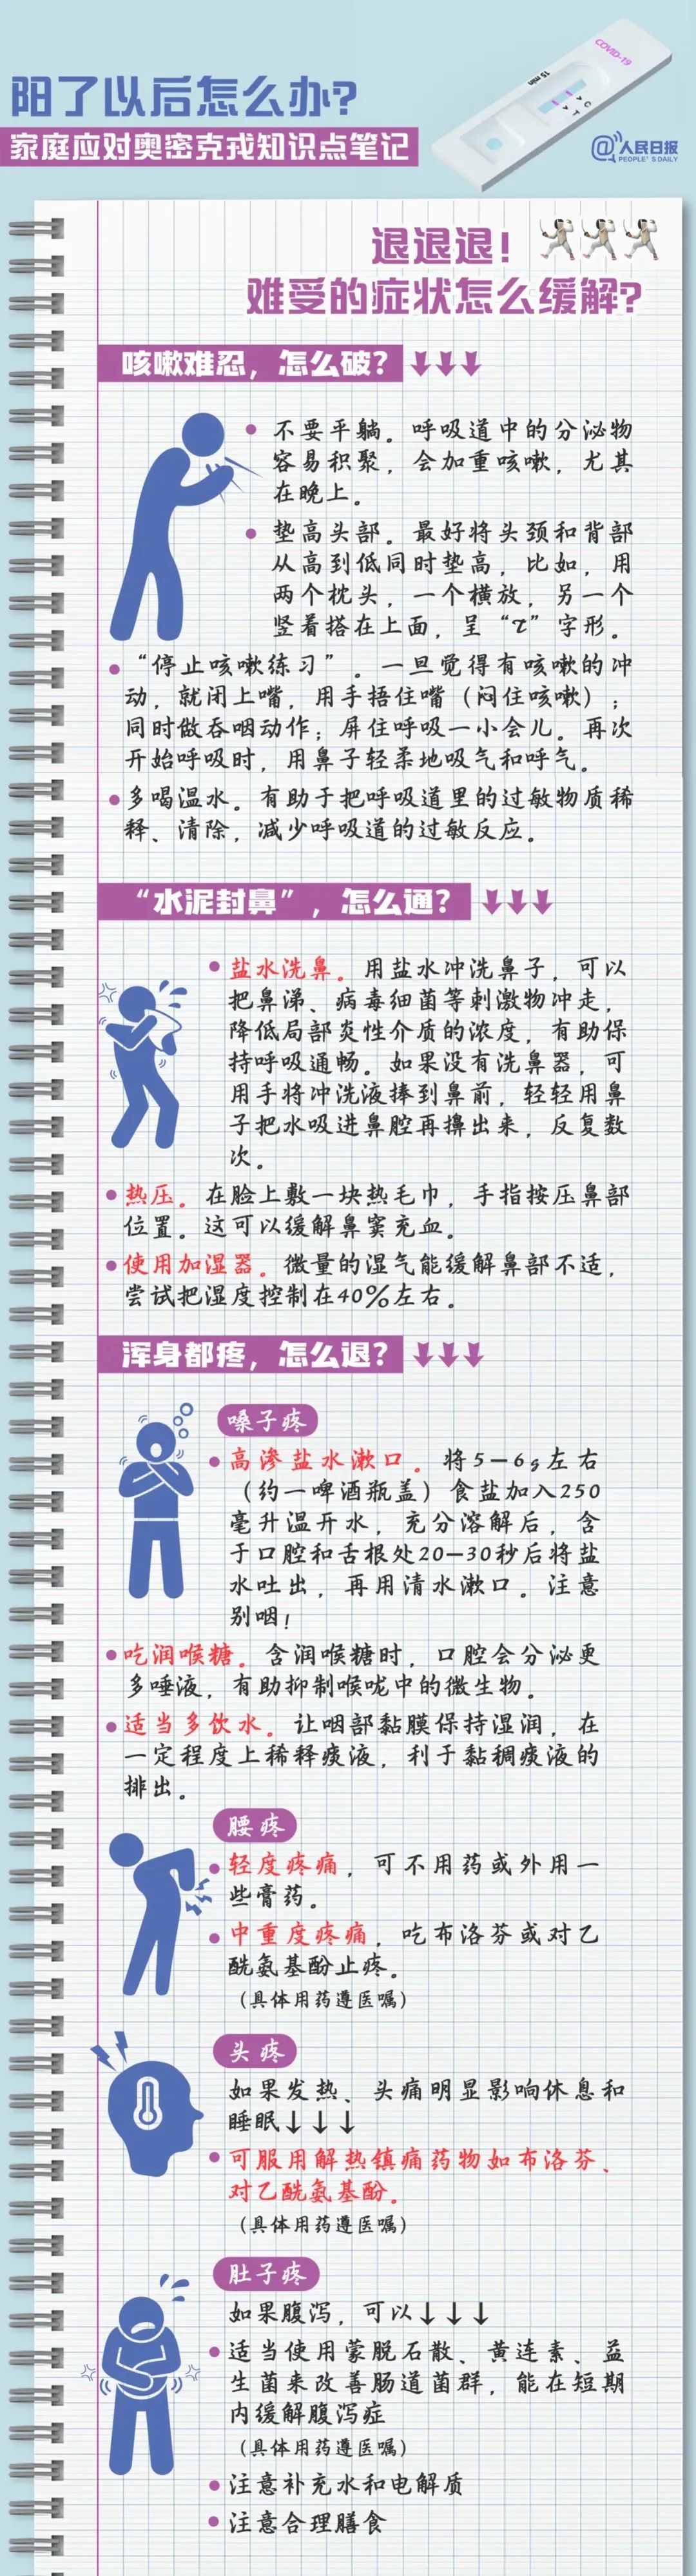 阳了以后怎么办?
家庭应对奥密克戎知识点笔记
COVID-19
15 min
C
T
@人民日报
PEOPLE'S DAILY
退退退!
难受的症状怎么缓解?
咳嗽难忍，怎么破?
不要平躺。呼吸道中的分泌物
容易积聚，会加重咳嗽，尤其
在晚上。
垫高头部。最好将头颈和背部
从高到低同时垫高，比如，用
两个枕头，一个横放，另一个
竖着搭在上面，呈“τ”字形。
“停止咳嗽练习”。一旦觉得有咳嗽的冲
动，就闭上嘴，用手捂住嘴（闷住咳嗽）；
同时做吞咽动作；屏住呼吸一小会儿。再次
开始呼吸时，用鼻子轻柔地吸气和呼气。
多喝温水。有助于把呼吸道里的过敏物质稀
释、清除，减少呼吸道的过敏反应。
“水泥封鼻”，怎么通?
盐水洗鼻。用盐水冲洗鼻子，可以
把鼻涕、病毒细菌等刺激物冲走，
降低局部炎性介质的浓度，有助保
持呼吸通畅。如果没有洗鼻器，可
用手将冲洗液捧到鼻前，轻轻用鼻
子把水吸进鼻腔再擤出来，反复数
次。
热压。在脸上敷一块热毛巾，手指按压鼻部
位置。这可以缓解鼻窦充血。
使用加湿器。微量的湿气能缓解鼻部不适，
尝试把湿度控制在40%左右。
浑身都疼，怎么退?
嗓子疼
高渗盐水漱口。将5—6g左右
（约一啤酒瓶盖）食盐加入250
毫升温开水，充分溶解后，含
于口腔和舌根处20—30秒后将盐
水吐出，再用清水漱口。注意
别咽！
吃润喉糖。含润喉糖时，口腔会分泌更
多唾液，有助抑制喉咙中的微生物。
适当多饮水。让咽部黏膜保持湿润，在
一定程度上稀释痰液，利于黏稠痰液的
排出。
腰疼
轻度疼痛，可不用药或外用一
些膏药。
中重度疼痛，吃布洛芬或对乙
酰氨基酚止疼。
（具体用药遵医嘱）
头疼
如果发热、头痛明显影响休息和
睡眠↓↓↓
可服用解热镇痛药物如布洛芬、
对乙酰氨基酚。
（具体用药遵医嘱）
肚子疼
如果腹泻，可以↓↓↓
适当使用蒙脱石散、黄连素、益
生菌来改善肠道菌群，能在短期
内缓解腹泻症
（具体用药遵医嘱）
注意补充水和电解质
注意合理膳食